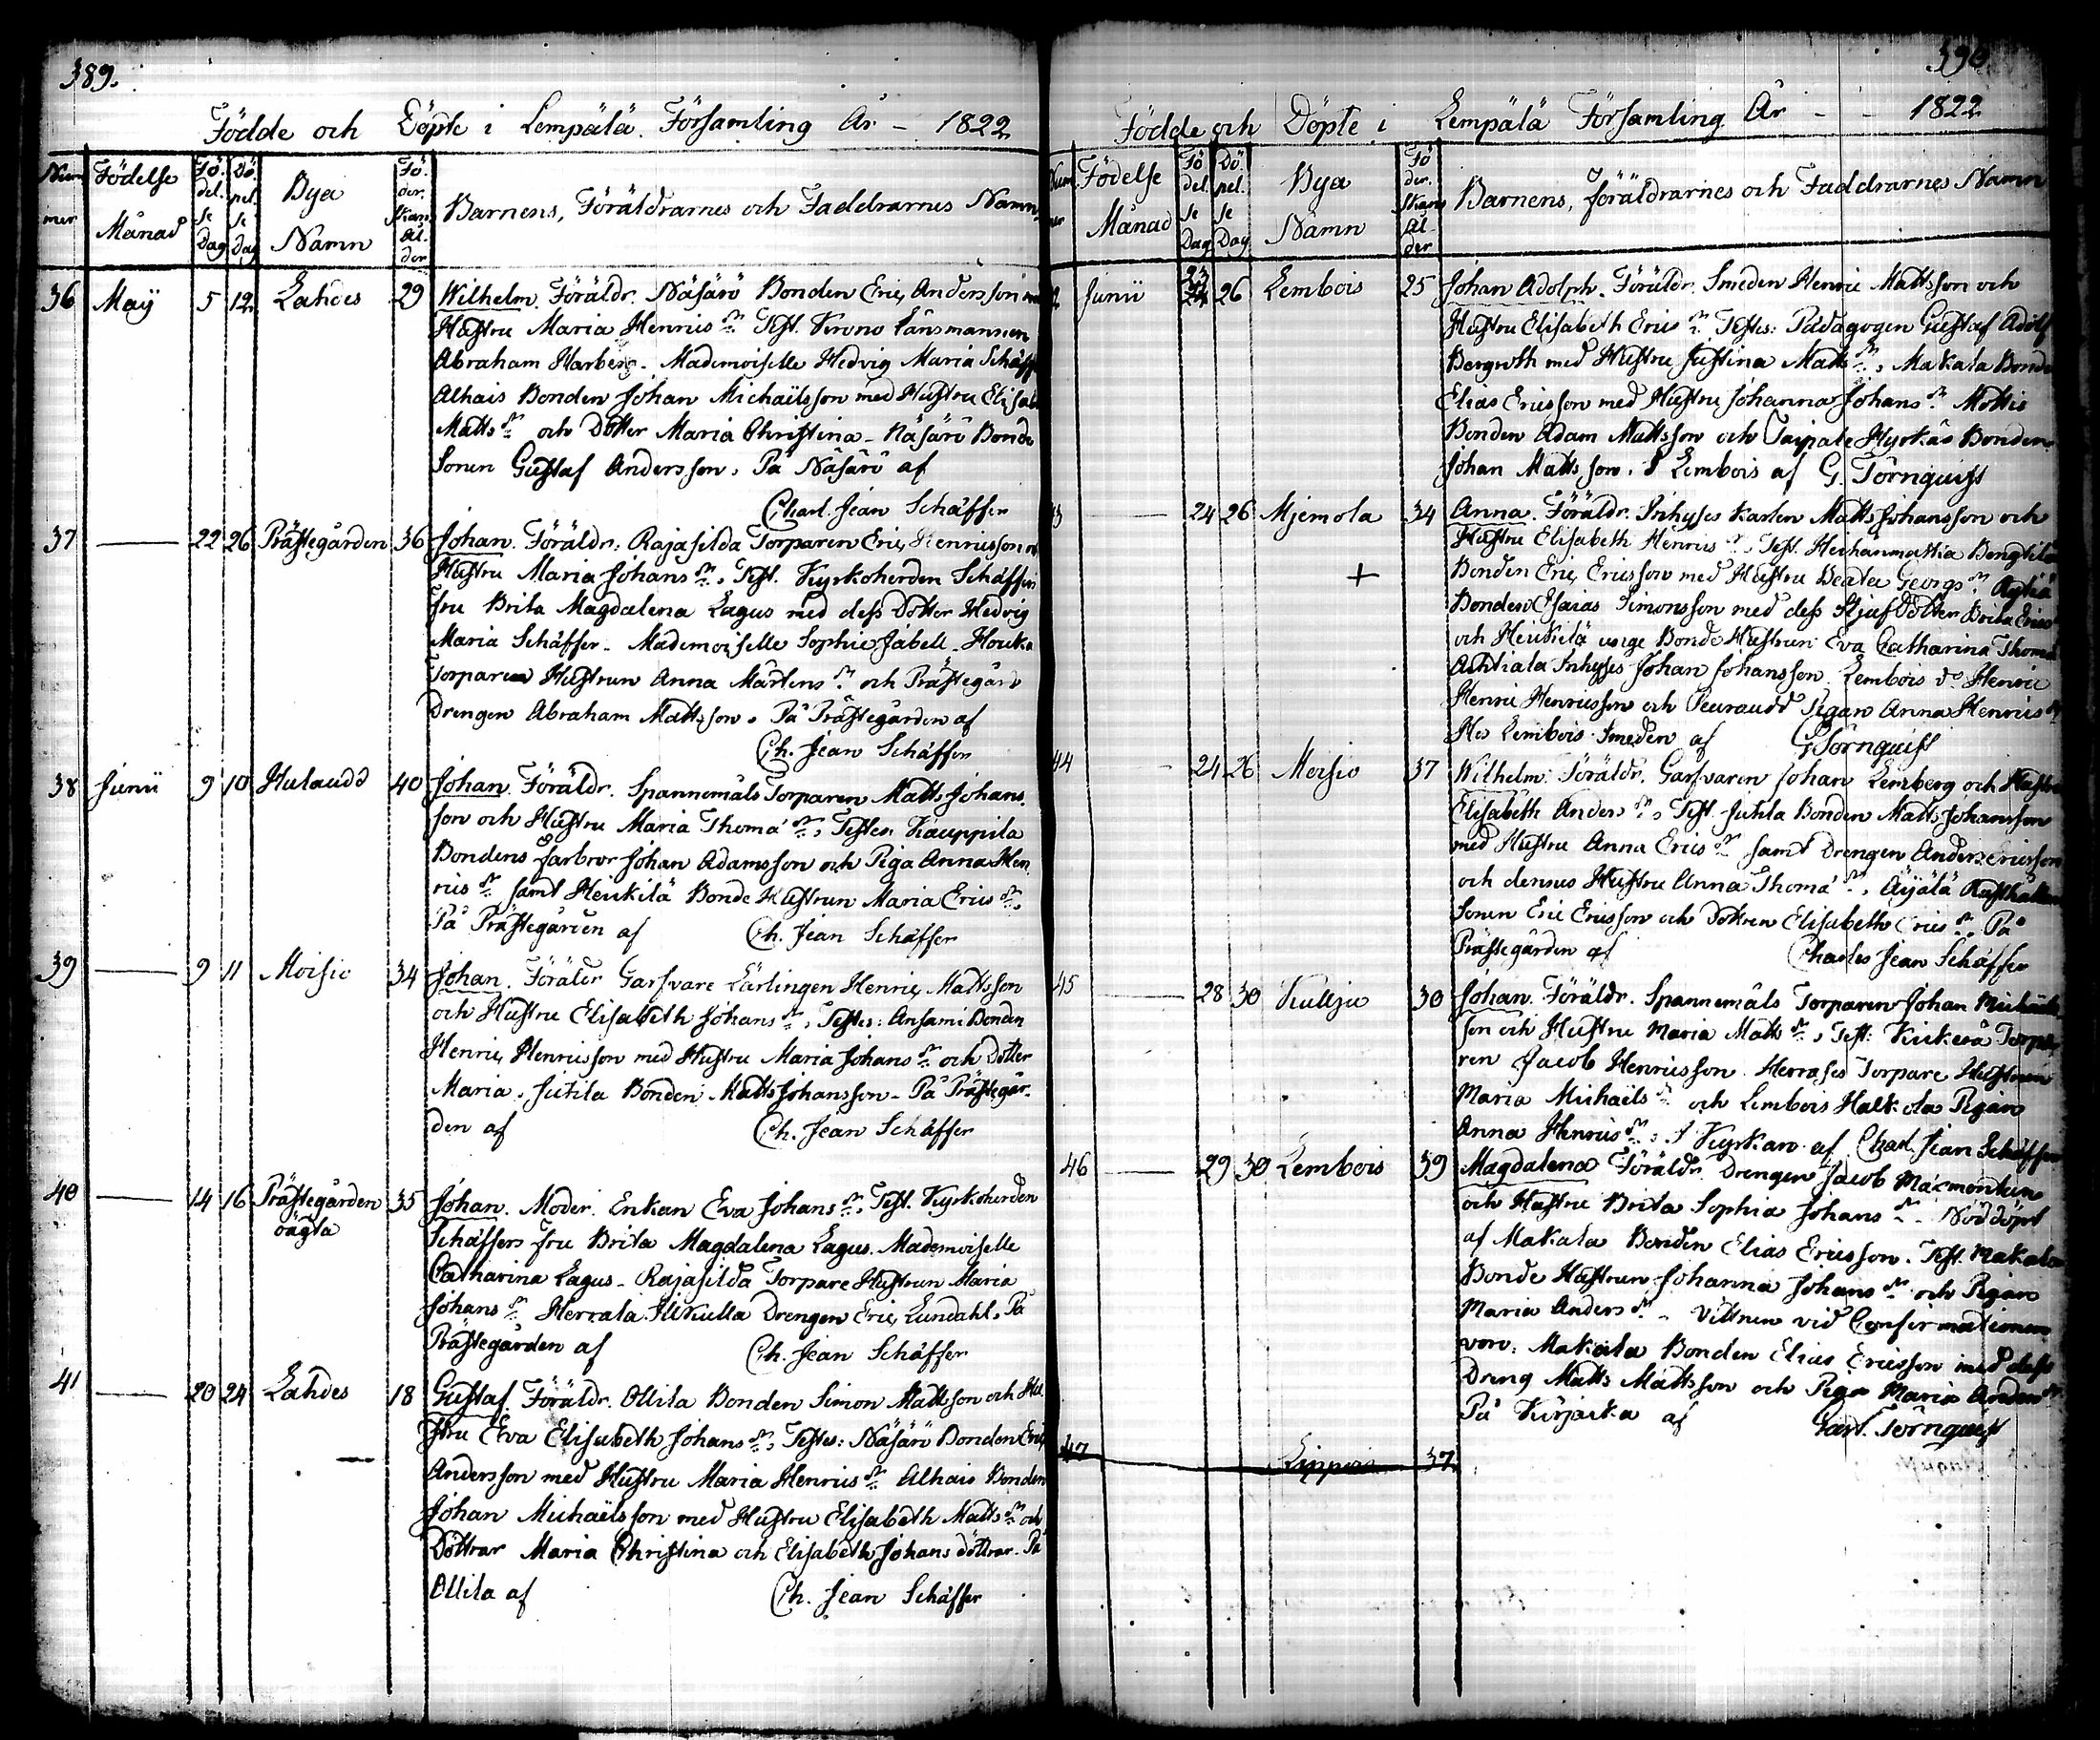 389.
Födde och Döpte i Lempälä Församling År - 1822
Num mer
Födelse Månad
Fö del se Dag
Dö pel se Dag
Bya Namn
Fö der skans Ål der
Barnens, Föräldrarnes och Faddrarnes Namn
36 Maÿ 5 12 Lahdes 29 Wilhelm. Föräldr. Näsärö Bonden Eric Andersson
Hustru Maria Henrics dr. Test. Krono Länsmannen
Abraham Harberg. Mademoiselle Hedvig Maria
Alhais Bonden Johan Michaëlsson med Hustru
Matts dr och Dotter Maria Christina - Näsärö Bonde
Sonen Gustaf Andersson. På Näsärö af
Charl. Jean Schäffer
37 — 22 26 Prästegården 36 Johan. Föräldr: Rajasilda Torparen Eric Henricsson
Hustru Maria Johans dr. Test. Kyrkoherden Schäffers
fru Brita Magdalena Lagus med dess Dotter Hedvig
Maria Schäffer. Mademoiselle Sophie Jabell - Houka
Torpare Hustrun Anna Mårtens dr och Prästegårds
Drengen Abraham Mattsson. På Prästegården af
Ch. Jean Schäffer
38 Junii 9 10 Hulaudd 40 Johan. Föräldr. Spannemåls Torparen Matts Johans
son och Hustru Maria Thomæ dr. Testes. Kauppila
Bondens farbror Johan Adamsson och Piga Anna Hen
rics dr samt Heikilä Bonde Hustrun Maria Erics dr.
På Prästegården af Ch. Jean Schäffer
39 — 9 11 Moisio 34 Johan. Föräldr Garfvare Lärlingen Henric Mattsson
och Hustru Elisabeth Johans dr. Testes: Ansami Bonden
Henric Henricsson med Hustru Maria Johans dr och Dotter
Maria. Jutila Bonden Matts Johansson - På Prästegår
den af Ch. Jean Schäffer
40 — 14 16 Prästegården 35 Johan. Moder. Enkan Eva Johans dr. Test. Kyrkoherden
oägta Schäffers fru Brita Magdalena Lagus. Mademoiselle
Catharina Lagus - Rajasilda Torpare Hustrun Maria
Johans dr Herrala Drengen Eric Lundahl. På
Prästegården af Ch. Jean Schäffer
41 — 20 24 Lahdes 18 Gustaf. Föräldr. Ollila Bonden Simon Mattsson och Hu
stru Eva Elisabeth Johans dr. Testes: Näsärö Bonden Eric
Andersson med Hustru Maria Henrics dr Alhais Bonden
Johan Michaëlsson med Hustru Elisabeth Matts dr och
Döttrar Maria Christina och Elisabeth Johans döttrar. På
Ollila af Ch. Jean Schäffer
390.
Födde och Döpte i Lempälä Församling År - - 1822
Födelse Månad
Fö del se Dag
Dö pel. se Dag
Bya Namn
Fö der. skans Ål der
Barnens, föräldrarnes och Faddrarnes Namn
Junii 23 26 Lembois 25 Johan Adolph. Föräldr. Smeden Henric Mattsson och
Hustru Elisabeth Erics dr. Testes: Pädagogen Gustaf Adolf
Bergroth med Hustru Justina Matts dr, Makala Bonde
Elias Ericsson med Hustru Johanna Johans dr Mottis
Bonden Adam Mattsson och Taipale Hyrkäs Bonden
Johan Mattsson. I Lembois af G. Törnquist
24 26 Mjemola 34 Anna. Föräldr. Inhyses Karlen Matts Johansson och
Hustru Elisabeth Henrics dr. Test.
+ Bonden Eric Ericsson med Hustru Beata Georgs dr
Bonden Esaias Simonsson med dess Brita
och Heikilä unge Bonde Hustrun Eva Catharina
Ahtiala Inhyses Johan Johansson. Lembois do Henric
Henric Henricsson och Peuraudd Pigan Anna Henrics dr
Hos Lembois Smeden af G Törnquist
44 — 24 26 Moisio 37 Wilhelm. Föräldr. Garfvaren Johan Lemberg och Hustru
Elisabeth Anders dr. Test. Jutila Bonden Matts Johansson
med Hustru Anna Erics dr samt Drengen Anders Ericsson
och dennes Hustru Anna Thomæ dr.
Sonen Eric Ericsson och Dottren Elisabeth Erics dr. På
Prästegården af Charles Jean Schäffer
45 — 28 30 Kulju 30 Johan. Föräldr. Spannemåls Torparen Johan Michaëls
son och Hustru Maria Matts dr. Test. Torpa
ren Jacob Henricsson. Torpare Hustrun
Maria Michaëls dr och Lembois Halkola Pigan
Anna Henrics dr. I Kyrkan af Charl. Jean Schäffer
46 — 29 30 Lembois 39 Magdalena Föräldr. Drengen Jacob
och Hustru Brita Sophia Johans dr - Nöddöpt
af Makala Bonden Elias Ericsson. Test. Makala
Bonde Hustrun Johanna Johans dr och Pigan
Maria Anders dr - Vittnen vid Confirmationen
voro: Makala Bonden Elias Ericsson med dess
Dreng Matts Mattsson och Piga Maria Anders dr
På af Gust. Törnquist
47 Lippois 37